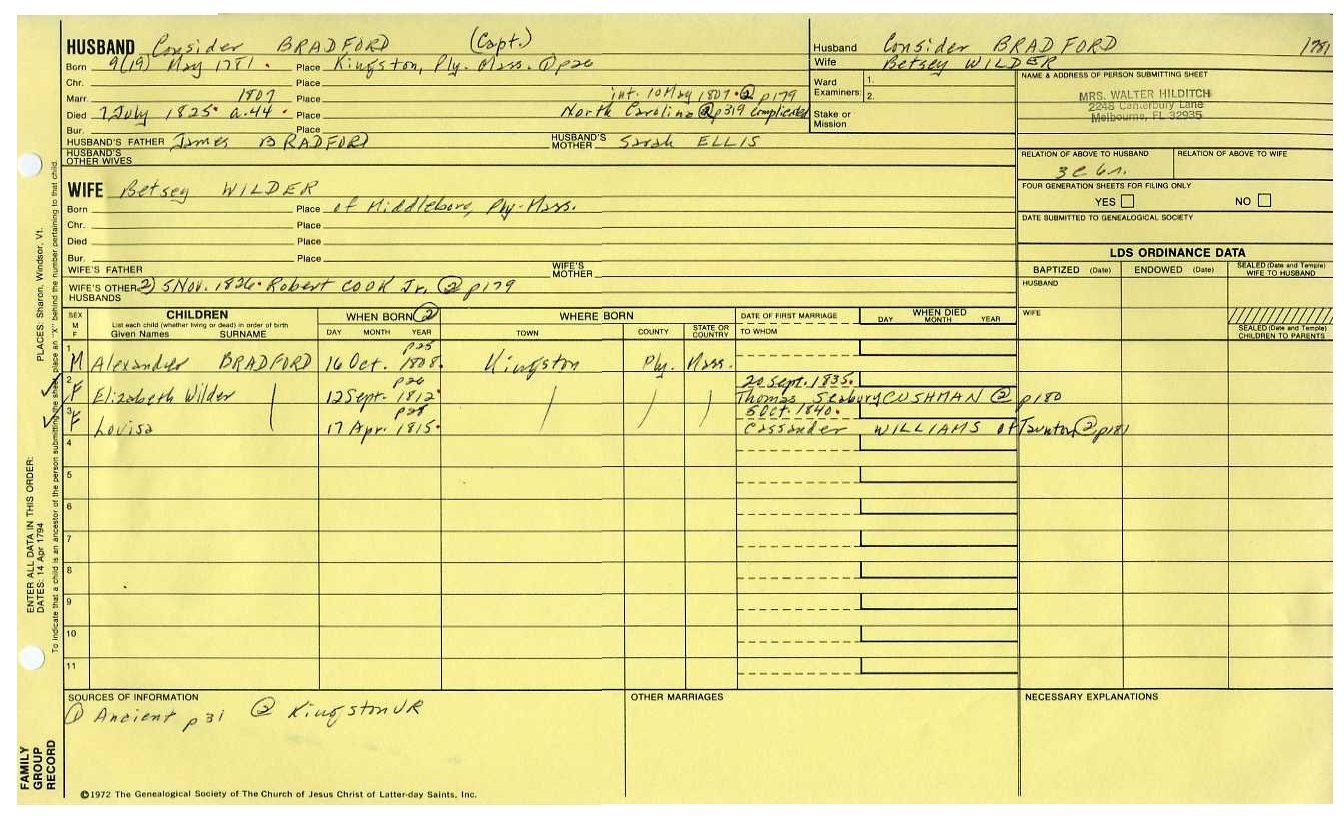 HUSBAND Consider BRADFORD (Capt.)
Born 9(19) May 1781. Place Kingston, Ply. Mass. ① p26
Chr. Place
Marr. 1807 Place int. 10 May 1807. ② p179
Died 7 July 1825. a.44. Place North Carolina ② p319 complicated
Bur. Place
HUSBAND'S FATHER James BRADFORD HUSBAND'S MOTHER Sarah ELLIS
HUSBAND'S OTHER WIVES
WIFE Betsey WILDER
Born Place of Middleboro, Ply-Mass.
Chr. Place
Died Place
Bur. Place
WIFE'S FATHER WIFE'S MOTHER
WIFE'S OTHER HUSBANDS 2) 5 Nov. 1826. Robert COOK Jr. ② p179
Husband Consider BRADFORD 1781
Wife Betsey WILDER
Ward Examiners: 1. 2.
Stake or Mission
NAME & ADDRESS OF PERSON SUBMITTING SHEET
MRS. WALTER HILDITCH
2248 Canterbury Lane
Melbourne, FL 32935
RELATION OF ABOVE TO HUSBAND RELATION OF ABOVE TO WIFE
3c 6r.
FOUR GENERATION SHEETS FOR FILING ONLY
YES NO
DATE SUBMITTED TO GENEALOGICAL SOCIETY
LDS ORDINANCE DATA
BAPTIZED (Date) ENDOWED (Date) SEALED (Date and Temple) WIFE TO HUSBAND
HUSBAND
WIFE
SEALED (Date and Temple) CHILDREN TO PARENTS
SEX M F CHILDREN WHEN BORN ② WHERE BORN DATE OF FIRST MARRIAGE WHEN DIED
List each child (whether living or dead) in order of birth
Given Names SURNAME DAY MONTH YEAR TOWN COUNTY STATE OR COUNTRY TO WHOM DAY MONTH YEAR
1 p25
M Alexander BRADFORD 16 Oct. 1808. Kingston Ply. Mass.
2 p26 20 Sept. 1835.
F Elizabeth Wilder 12 Sept. 1812. Thomas Seabury CUSHMAN ② p180
3 p28 5 Oct. 1840.
F Lovisa 17 Apr. 1815. Cassander WILLIAMS of Taunton ② p181
4
5
6
7
8
9
10
11
SOURCES OF INFORMATION OTHER MARRIAGES NECESSARY EXPLANATIONS
① Ancient p31 ② Kingston VR
©1972 The Genealogical Society of The Church of Jesus Christ of Latter-day Saints, Inc.
FAMILY GROUP RECORD
ENTER ALL DATA IN THIS ORDER:
DATES: 14 Apr 1794
PLACES: Sharon, Windsor, Vt.
To indicate that a child is an ancestor of the person submitting the sheet, place an "X" behind the number pertaining to that child.